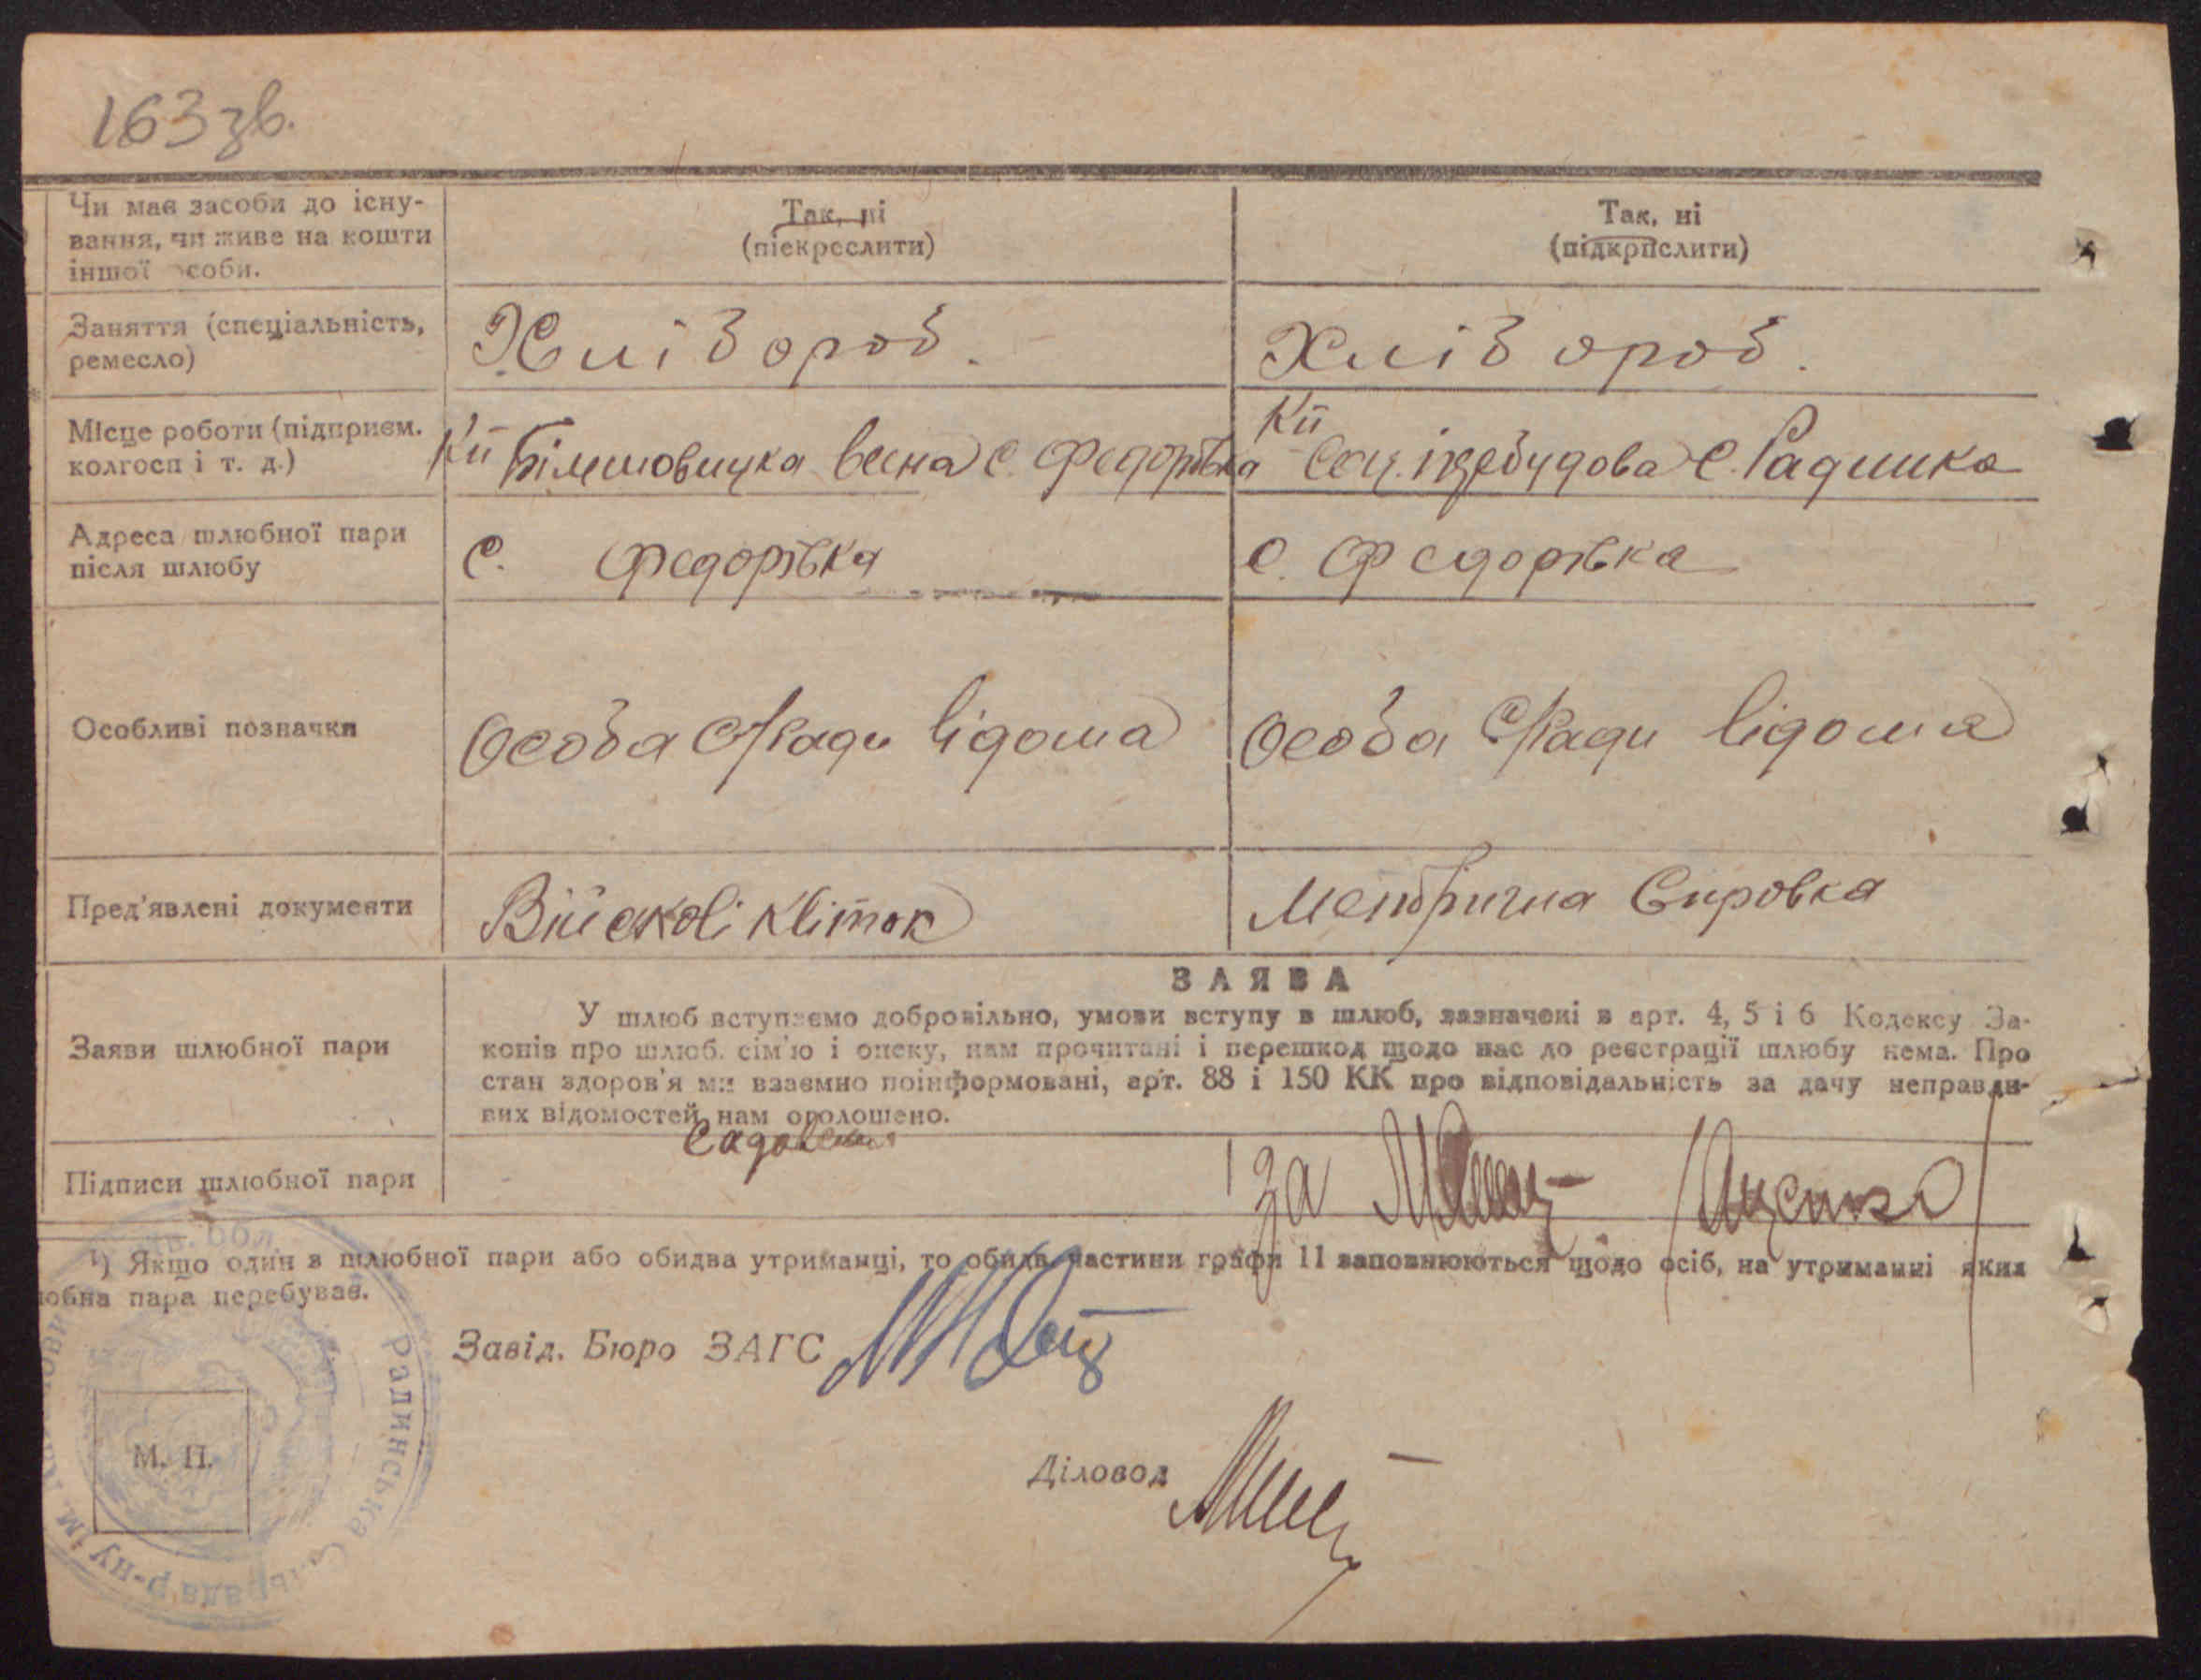 163 зв.
Чи має засоби до існу-
вання, чи живе на кошти
іншої особи.
Так, ні
(піекреслити)
Так, ні
(підкрпслити)
Заняття (спеціальність,
ремесло)
Хлібороб.
Хлібороб.
Місце роботи (підприєм.
колгосп і т. д.)
Кп Більшовицка весна с. Федорівка
Кп Соц. перебудова С. Радинка
Адреса шлюбної пари
після шлюбу
с. Федорівка
с. Федорівка
Особливі позначки
Особа С/Ради відома
Особа С/Ради відома
Пред'явлені документи
Війскові квіток
Метрична Спровка
Заяви шлюбної пари
ЗАЯВА
У шлюб вступаємо добровільно, умови вступу в шлюб, зазначені в арт. 4, 5 і 6 Кодексу За-
конів про шлюб. сім'ю і опеку, нам прочитані і перешкод щодо нас до реєстрації шлюбу нема. Про
стан здоров'я ми взаємно поінформовані, арт. 88 і 150 КК про відповідальність за дачу неправди-
вих відомостей нам оголошено.
Підписи шлюбної пари
за
/Яценко/
¹) Якщо один з шлюбної пари або обидва утриманці, то обидв частини графи 11 заповнюються щодо осіб, на утриманні яких
юбна пара перебуває.
Завід. Бюро ЗАГС
Діловод
М. П.
Радинська Сільрада р-ну ім.